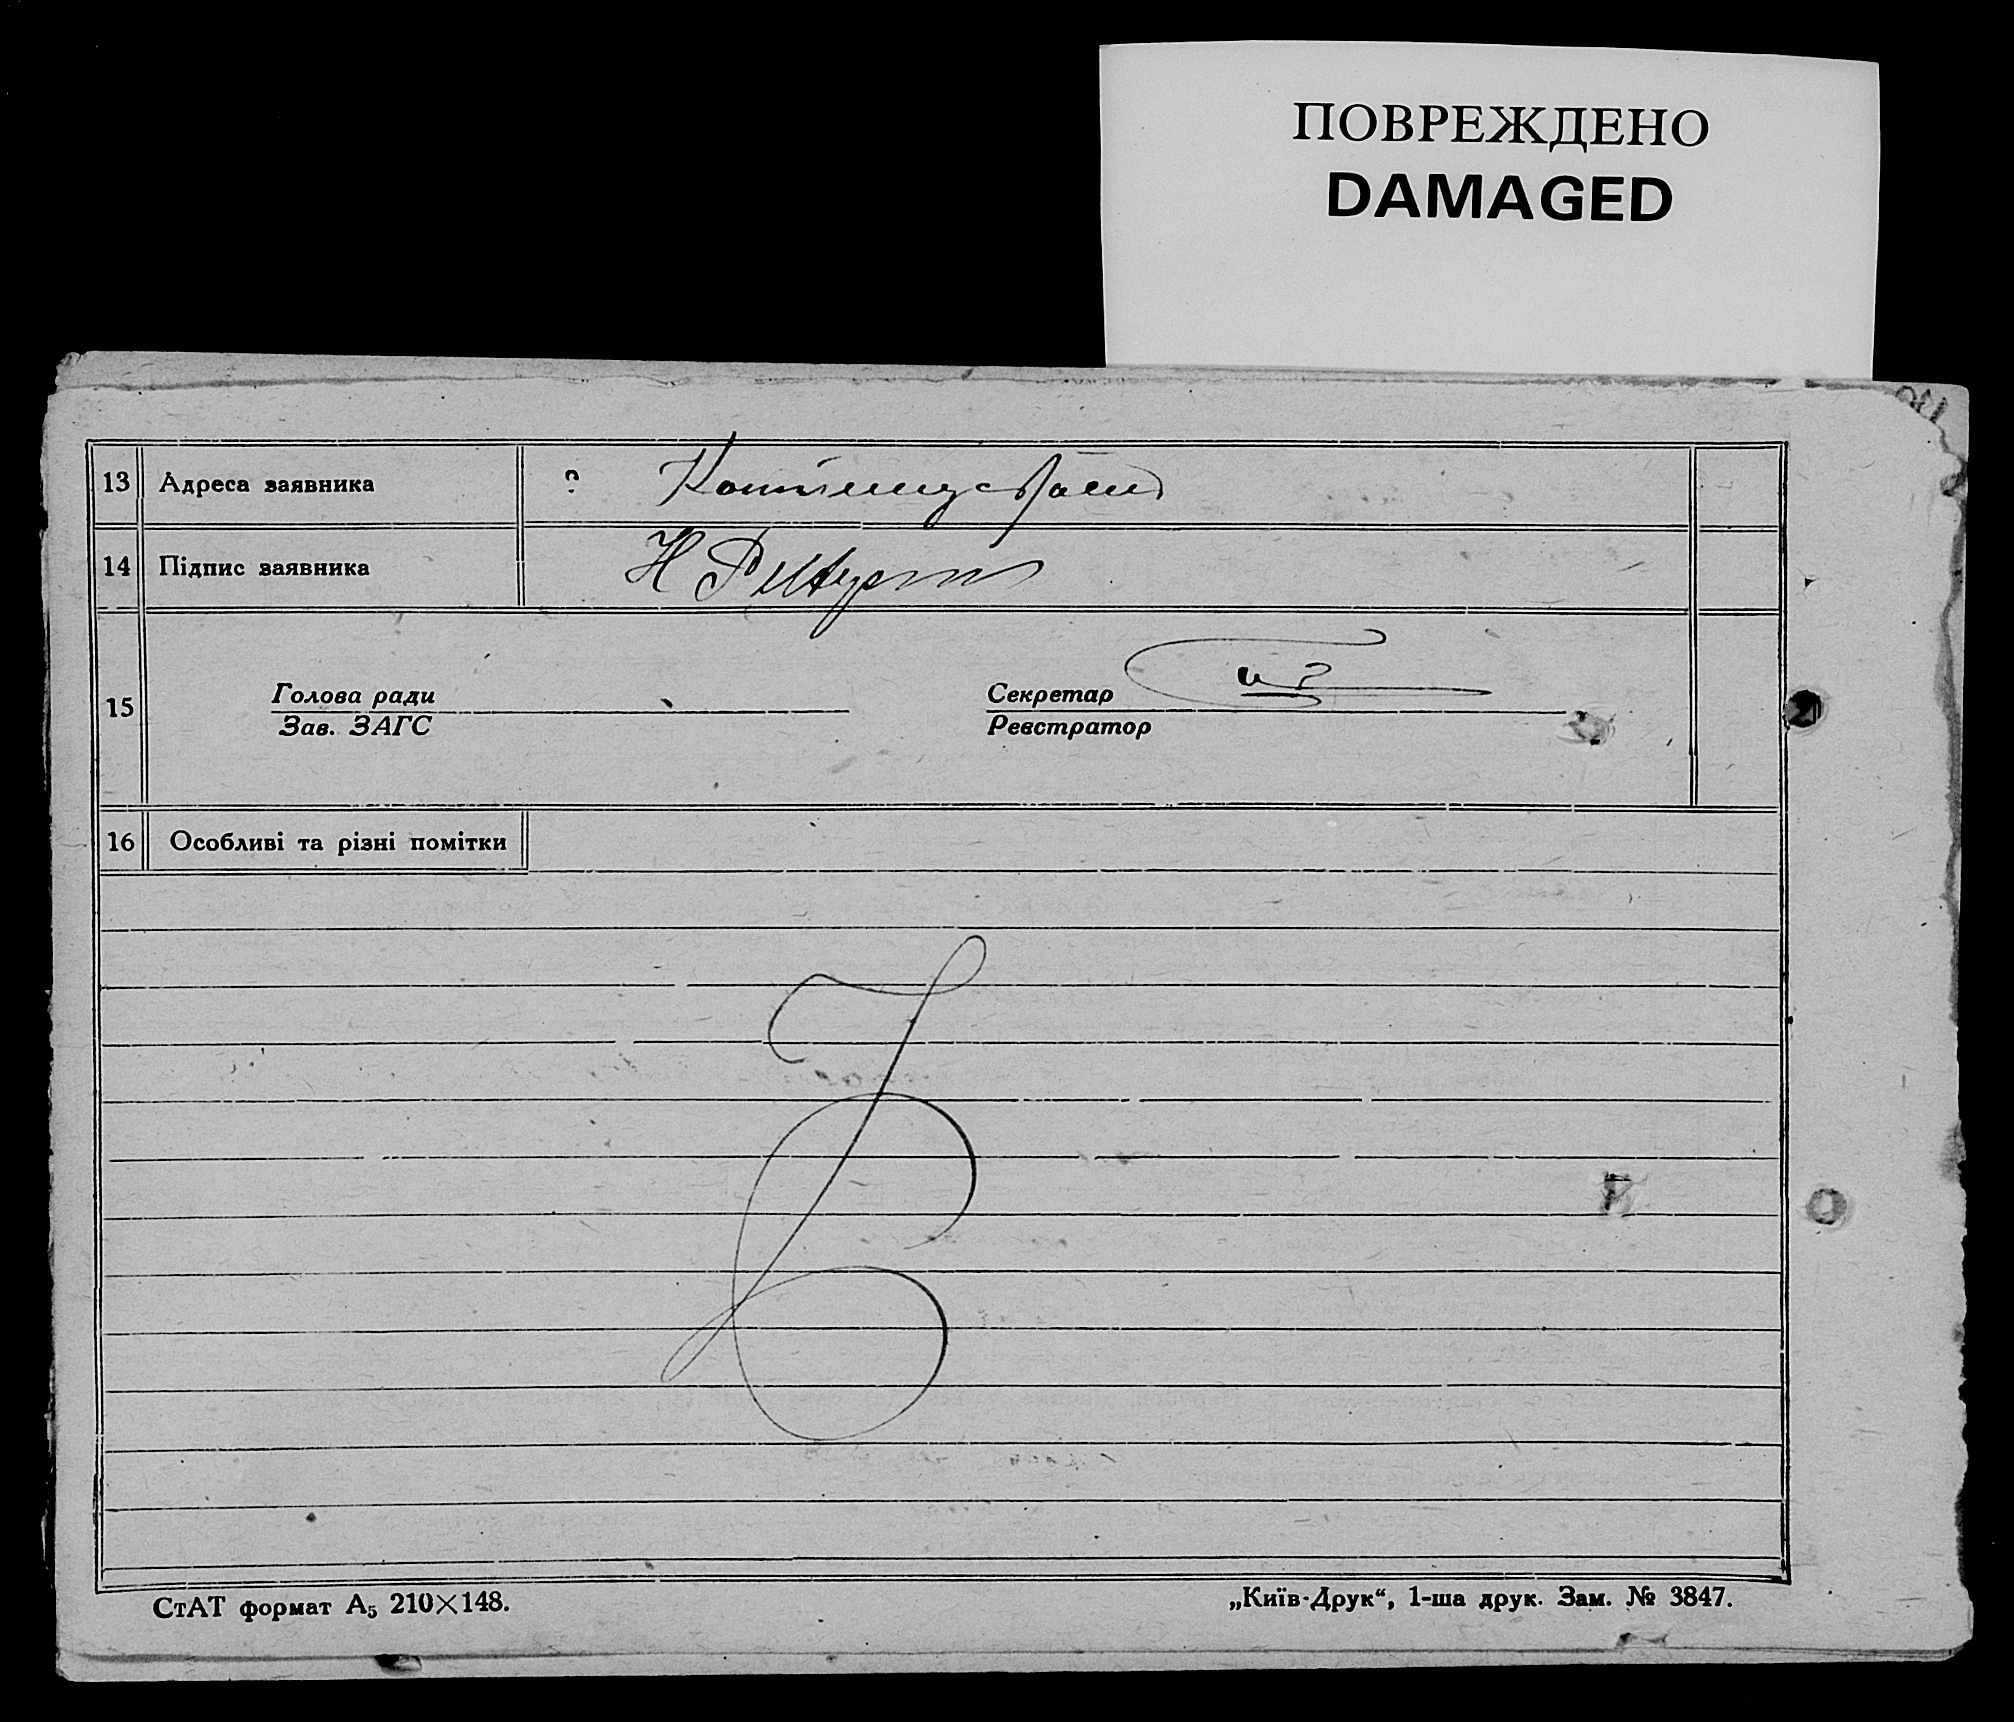 ПОВРЕЖДЕНО
DAMAGED
13 Адреса заявника ?
14 Підпис заявника
15 Голова ради Секретар
Зав. ЗАГС Реєстратор
16 Особливі та різні помітки
СтАТ формат А5 210×148. „Київ-Друк“, 1-ша друк. Зам. № 3847.